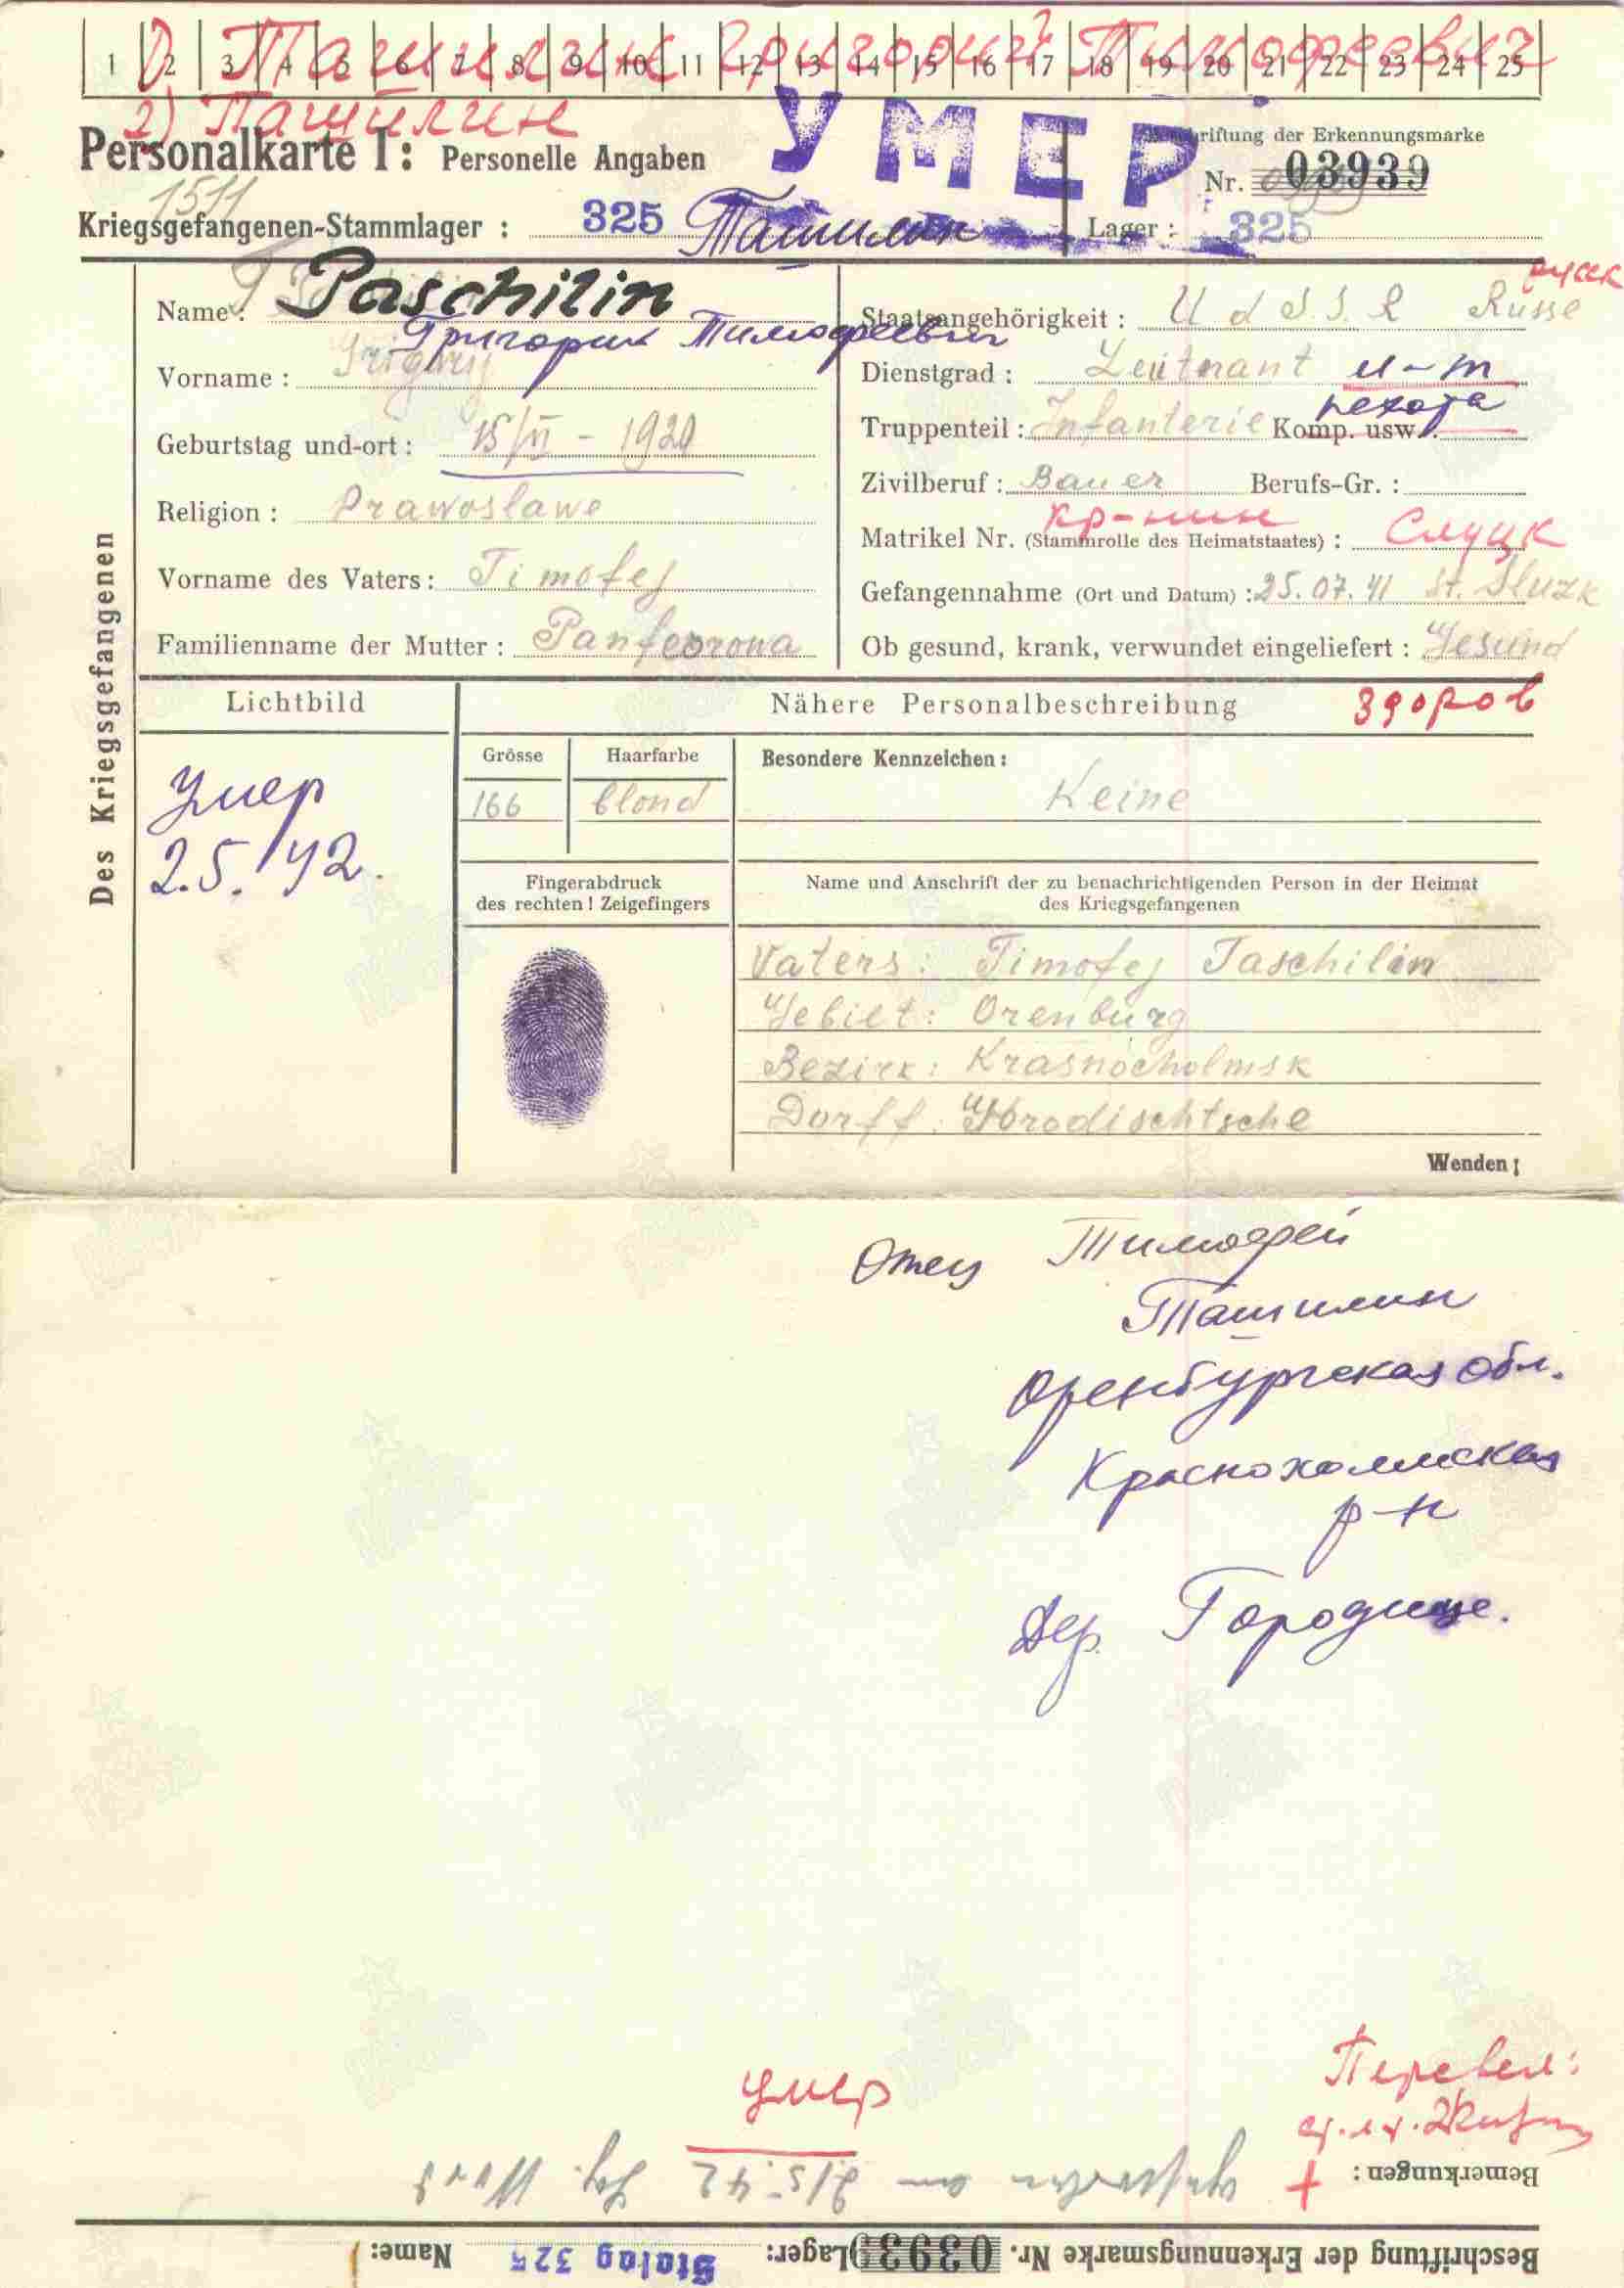 1 2 3 4 5 6 7 8 9 10 11 12 13 14 15 16 17 18 19 20 21 22 23 24 25
1) Ташилин Григорий Тимофеевич
2) Пашилин
УМЕР
Personalkarte I: Personelle Angaben
riftung der Erkennungsmarke
Nr. 03939
1511
Kriegsgefangenen-Stammlager : 325 Ташилин Lager : 325
Des Kriegsgefangenen
Name: Paschilin
Григорий Тимофеевич
Vorname : Grigorij
Geburtstag und-ort : 15/II - 1920
Religion : Prawoslawe
Vorname des Vaters: Timofej
Familienname der Mutter : Panferowa
Staatsangehörigkeit : U d S.S.R Russe
русск
Dienstgrad : Leutnant л-т
Truppenteil : Infanterie Komp. usw.
пехота
Zivilberuf : Bauer Berufs-Gr. :
кр-нин
Matrikel Nr. (Stammrolle des Heimatstaates) : Слуцк
Gefangennahme (Ort und Datum) : 25.07.41 St. Sluzk
Ob gesund, krank, verwundet eingeliefert : Gesund
здоров
Lichtbild
Умер
2.5.42.
Nähere Personalbeschreibung
Grösse Haarfarbe Besondere Kennzeichen:
166 blond Keine
Fingerabdruck
des rechten! Zeigefingers
Name und Anschrift der zu benachrichtigenden Person in der Heimat
des Kriegsgefangenen
Vaters: Timofej Taschilin
Gebiet: Orenburg
Bezirk: Krasnocholmsk
Dorff: Gorodischtsche
Wenden!
Отец Тимофей
Ташилин
Оренбургская обл.
Краснохолмская
р-н
Дер. Городище.
Перевел:
умер
Bemerkungen: + gestorben am 2/5.42
Beschriftung der Erkennungsmarke Nr. 03939 Lager: Stalag 325 Name: